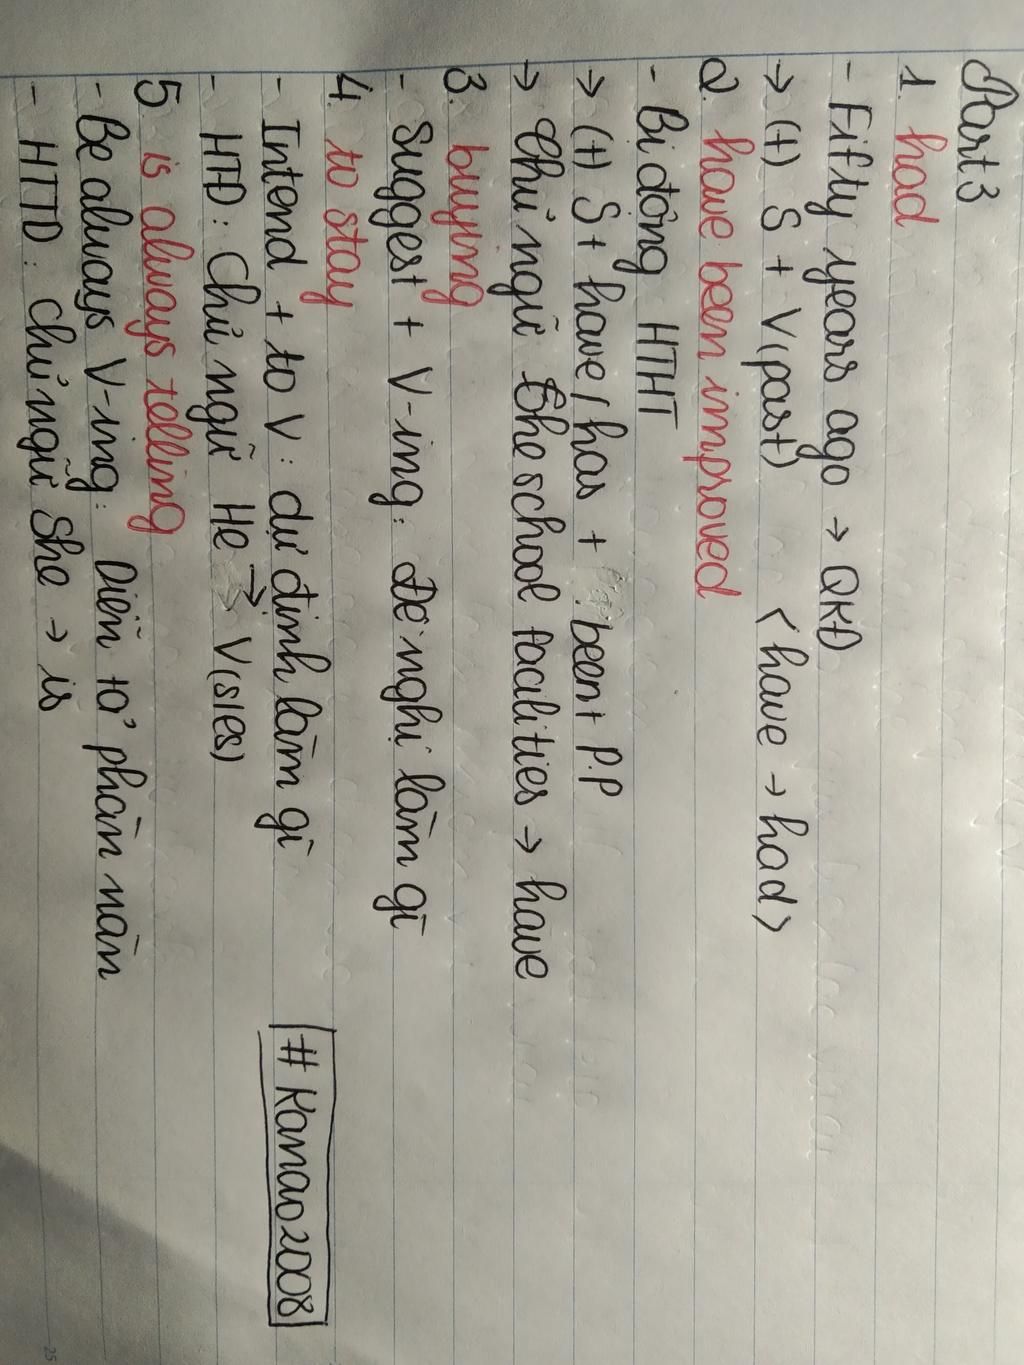 Part 3
1. had
- Fifty years ago → QKĐ
→ (+) S + V(past) <have → had>
2. have been improved
- Bị động HTHT
→ (+) S + have / has + been + P.P
→ Chủ ngữ The school facilities → have
3. buying
- Suggest + V-ing: Đề nghị làm gì
4. to stay
- Intend + to V: dự định làm gì
- HTĐ: Chủ ngữ He → V(s/es)
5. is always telling
- Be always V-ing: Diễn tả phàn nàn
- HTTD: chủ ngữ She → is
# Kanao2008
25